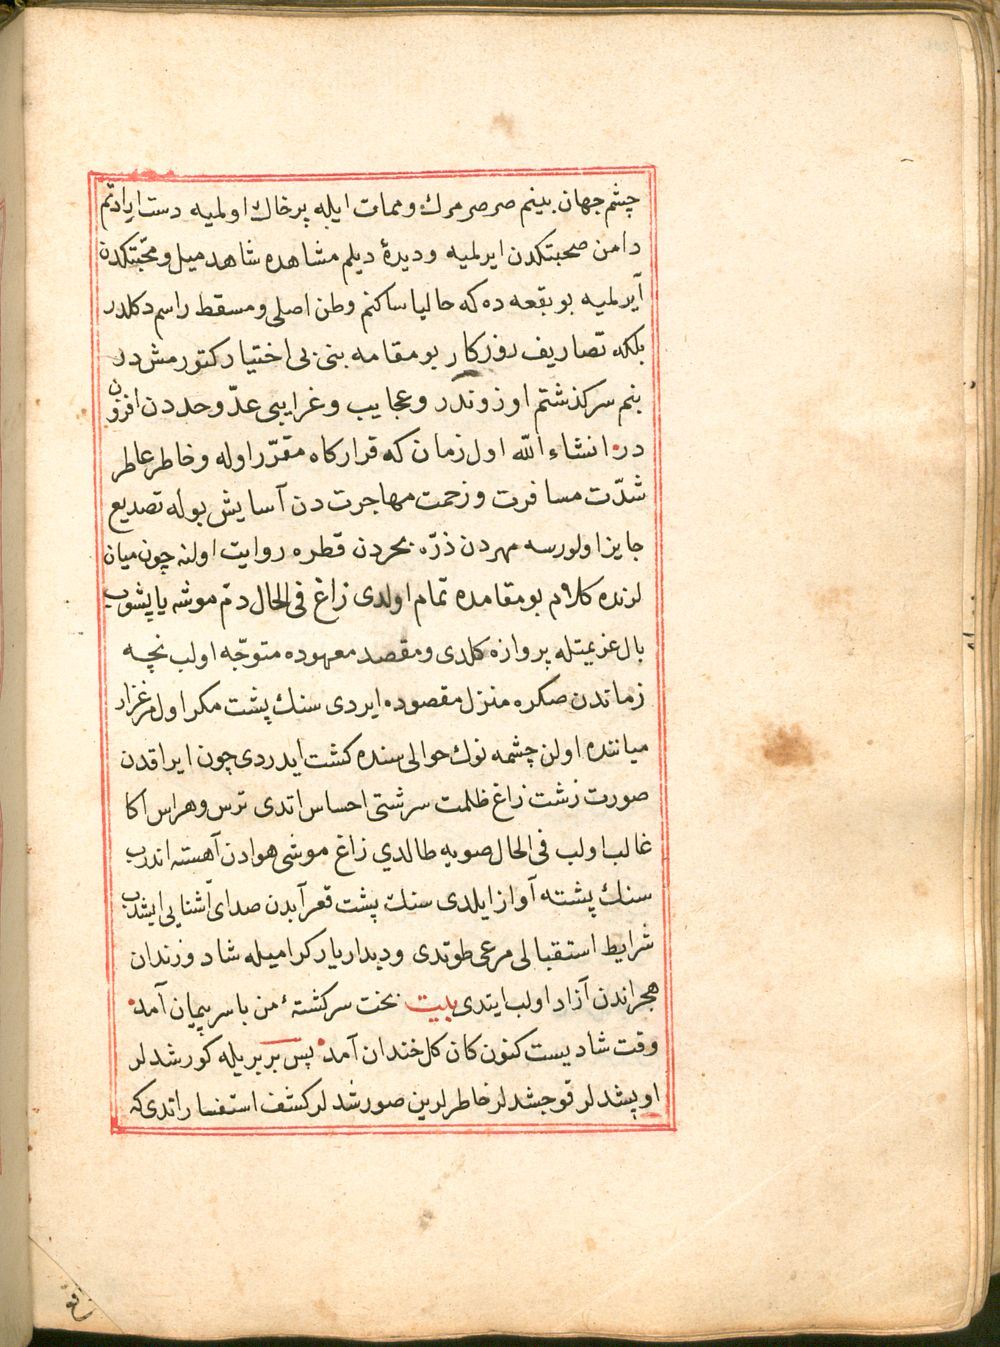 چشم جهان بینم صرصر مرك و ممات ایله پرخاك اولمیه دست ارادتم
دامن صحبتکدن ایرلمیه و دیدهٔ دیلم مشاهده شاهد میل و محبّتکدن
آیرلمیه بو بقعه ده که حالیا ساکنم وطن اصلی و مسقط راسم دکلدر
بلکه تصاریف روزکار بو مقامه بنی بی اختیار کتورمش در
بنم سرکذشتم اوزوندر و عجایب و غرایبی عدّ و حددن افزون
در انشاء الله اول زمان که قرارکاه مقرّر اوله و خاطر عاطر
شدّت مسافرت و زحمت مهاجرت دن آسایش بوله تصدیع
جایز اولورسه مهردن ذرّه بحردن قطره روایت اولنه چون میان
لرنده کلام بو مقامده تمام اولدی زاغ فی الحال دمّ موشه یاپشوب
بال عزیمتله پروازه کلدی و مقصد معهوده متوجّه اولب نچه
زماندن صکره منزل مقصوده ایردی سنك پشت مکر اول مرغزار
میاننده اولن چشمه نوك حوالی سنده کشت ایدردی چون ایراقدن
صورت زشت زاغ ظلمت سرشتی احساس اتدی ترس و هراس اکا
غالب اولب فی الحال صویه طالدي زاغ موشی هوادن آهسته اندرب
سنك پشته آواز ایلدی سنك پشت قعر آبدن صدای آشنایی ایشدب
شرایط استقبالی مرعی طوتدی و دیدار یار کرامیله شاد و زندان
هجراندن آزاد اولب ایتدی بیت بخت سرکشتهٔ من با سر پیمان آمد
وقت شادیست کنون کان کل خندان آمد پس بر بریله کورشدلر
اوپشدلر قوجشدلر خاطرلرین صورشدلر کشف استفسار اتدی که